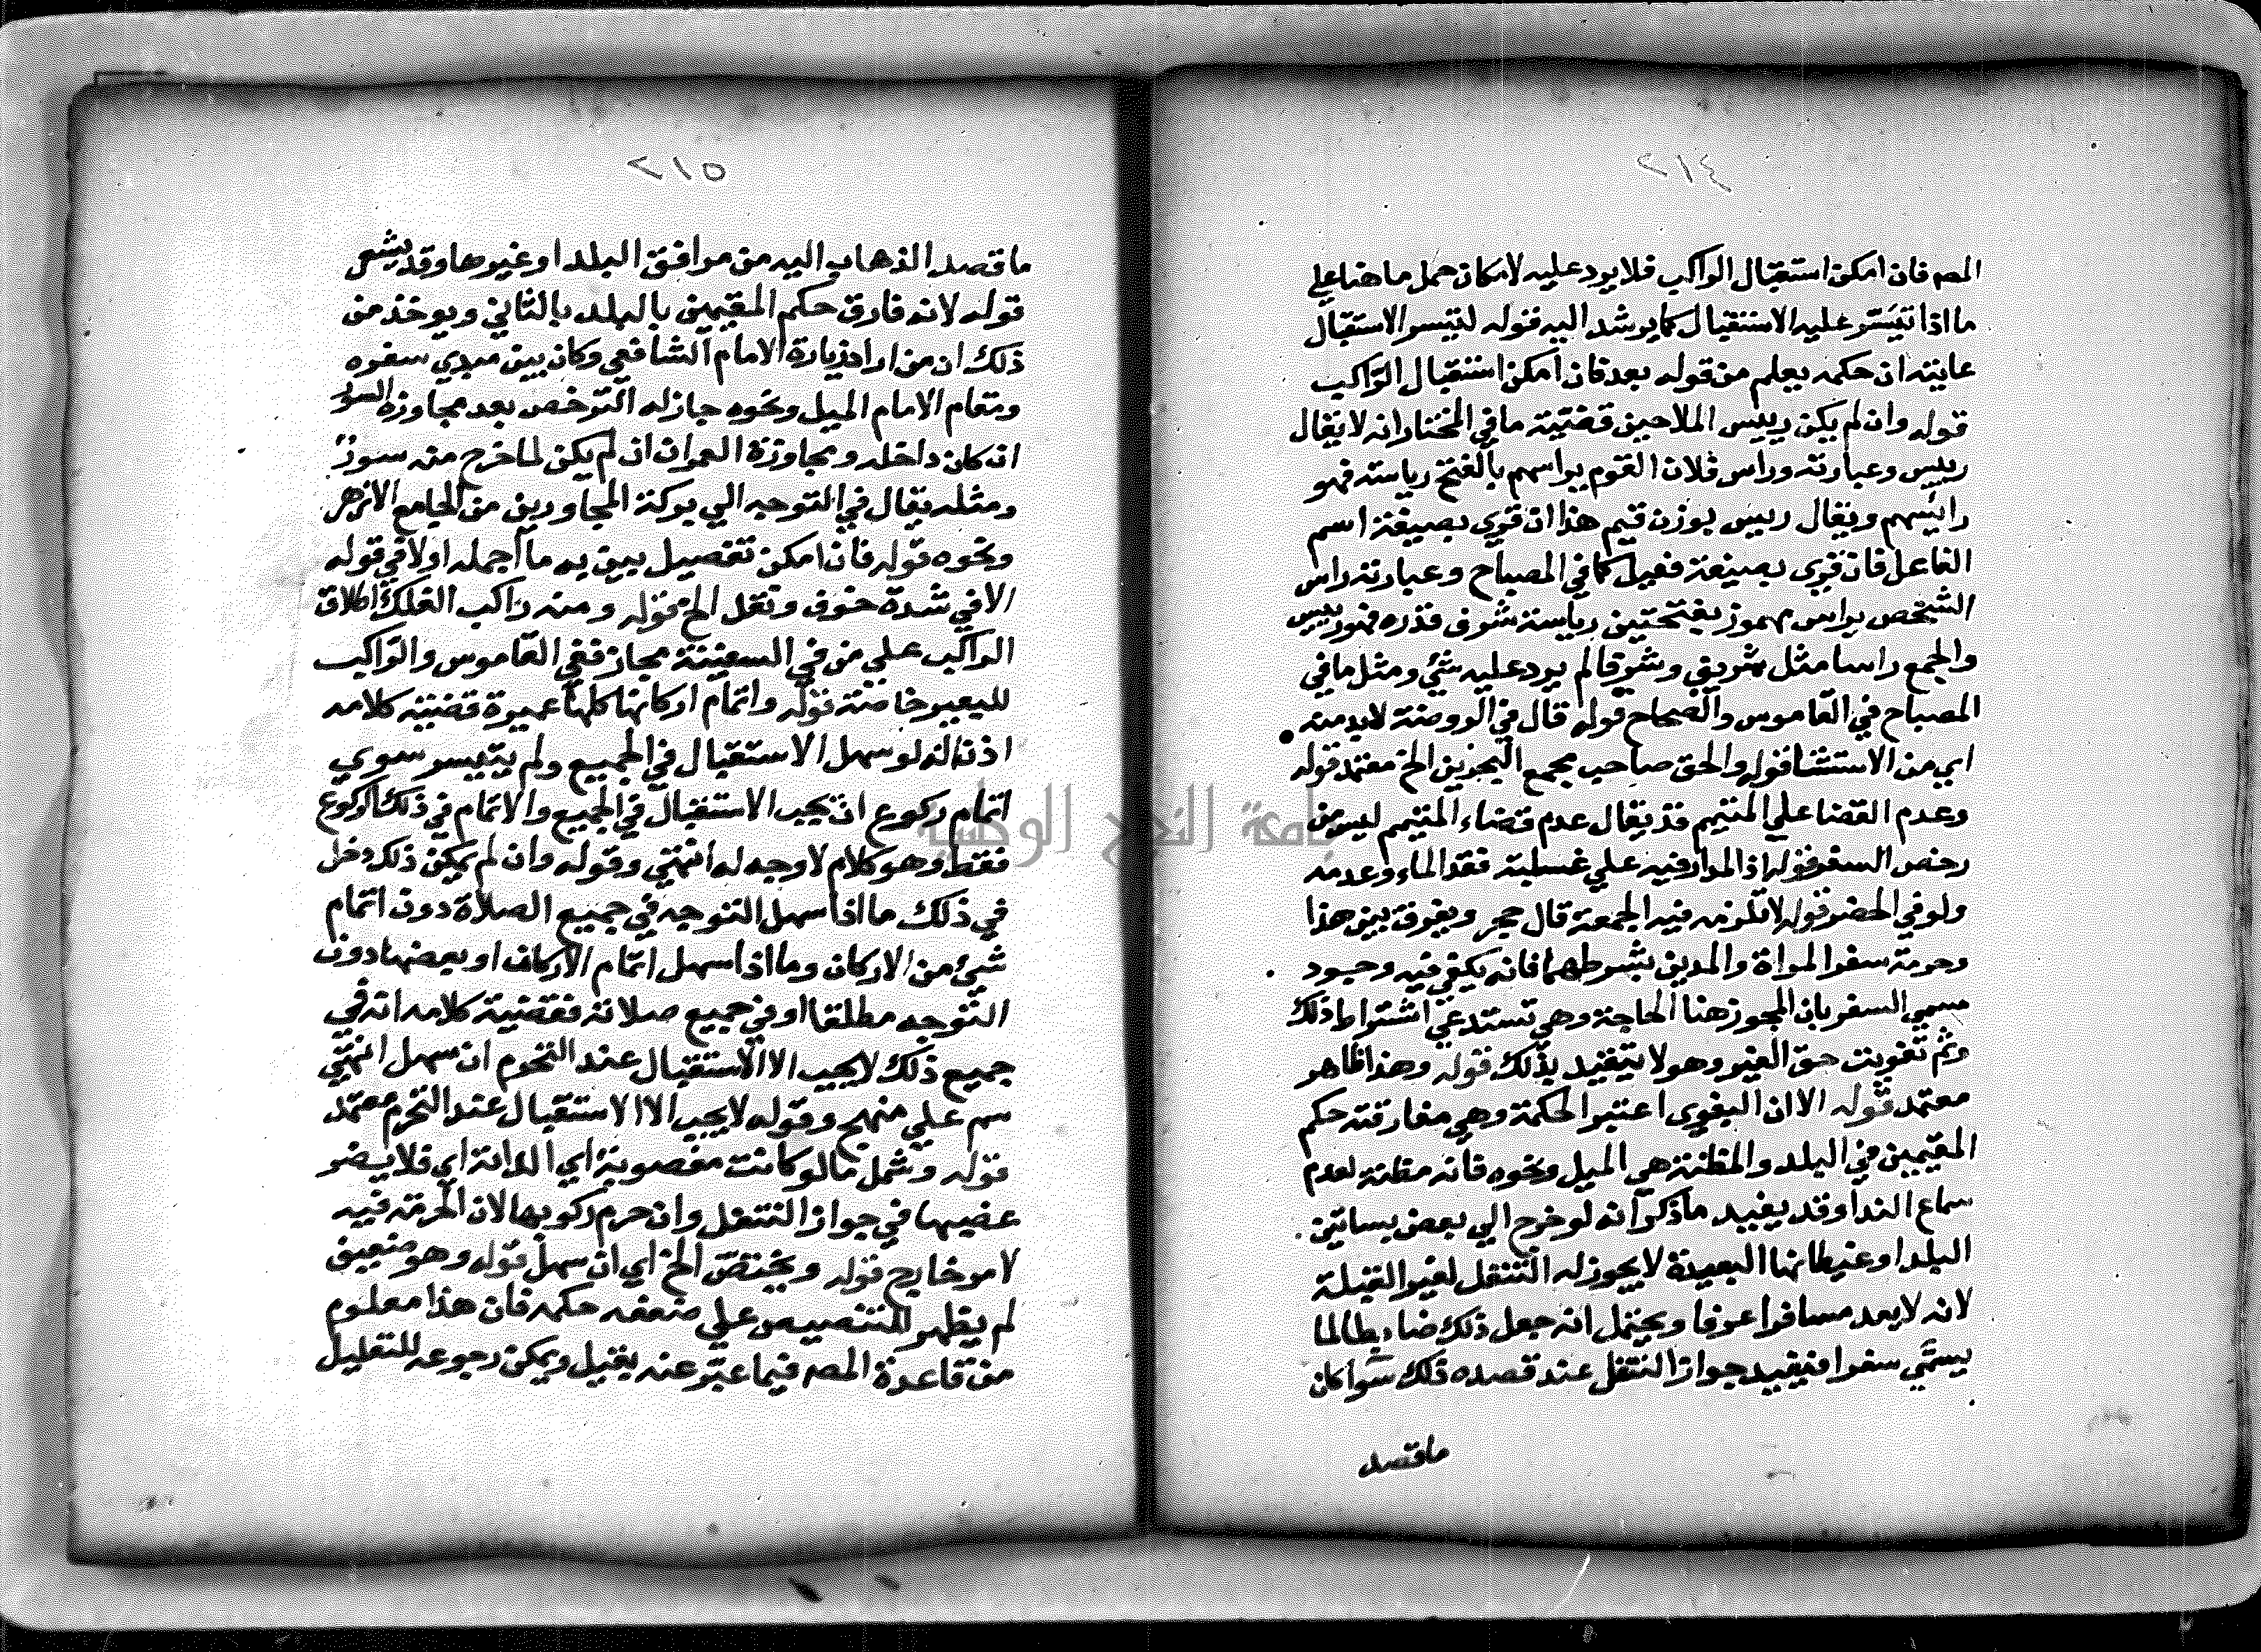 ٢١٤
المص فان امكن استقبال الراكب فلا يرد عليه لامكان حمل ما هنا علي
ما اذا تيسر عليه الاستقبال كما يرشد اليه قوله لتيسر الاستقبال
غايته ان حكمه يعلم من قوله بعد فان امكن استقبال الراكب
قوله وان لم يكن رييس الملاحين قضيته ما في المختار انه لا يقال
رييس وعبارته وراس فلان القوم يراسهم بالفتح رياسته فهو
رائيسهم ويقال رييس بوزن قيم هذا ان قري بصيغة اسم
الفاعل فان قري بصيغة فعيل كما في المصباح وعبارته راس
الشخص يراس مهموز بفتحتين رياسة شرف قدره فهو رييس
والجمع راسا مثل شريف وشرفا لم يرد عليه شئ ومثل ما في
المصباح في القاموس والصحاح قوله قال في الروضة لا بد منه
اي من الاستثنا قوله والحق صاحب مجمع البحرين الخ معتمد قوله
وعدم القضا علي المتيمم قد يقال عدم قضاء المتيمم ليس من
رخص السفر قوله اذ المدار فيه علي غسلية فقد الماء وعدمه
ولو في الحضر قوله لا تلزمه فيه الجمعة قال حجر ويفرق بين هذا
وحرمة سفر المراة والمدين بشرطهما فانه يكفي فيه وجود
مسمي السفر بان المجوز هنا الحاجة وهي تستدعي اشتراط ذلك
وثم تفويت حق الغير وهو لا يتقيد بذلك قوله وهذا ظاهر
معتمد قوله الا ان البغوي اعتبر الحكمة وهي مفارقته حكم
المقيمين في البلد والمظنة هي الميل ونحوه فانه مظنة لعدم
سماع الندا وقد يفيد ما ذكر انه لو خرج الي بعض بساتين
البلد او غيطانها البعيدة لا يجوز له التنفل لغير القبلة
لانه لا يعد مسافرا عرفا ويحتمل انه جعل ذلك ضابطا لما
يسمي سفرا فيفيد جواز التنفل عند قصده ذلك سوا كان
ما قصد
٢١٥
ما قصد الذهاب اليه من مرافق البلد او غيرها وقد يشعر
قوله لانه فارق حكم المقيمين بالبلد بالثاني ويوخذ من
ذلك ان من اراد زيارة الامام الشافعي وكان بين مبدي سفره
ومقام الامام الميل ونحوه جاز له الترخص بعد مجاوزة السور
ان كان داخله ومجاوزة العمران ان لم يكن لما خرج منه سور
ومثله يقال في التوجه الي بركة المجاورين من الجامع الازهر
ونحوه قوله فان امكن تفصيل بين به ما اجمله اولا في قوله
الا في شدة خوف ونفل الخ قوله ومنه راكب الفلك اطلاق
الراكب علي من في السفينة مجاز ففي القاموس والراكب
للبعير خاصة قوله واتمام اركانها كلها عميرة قضية كلامه
اذ ذاك انه لو سهل الاستقبال في الجميع ولم يتيسر سوي
اتمام ركوع ان يجب الاستقبال في الجميع والاتمام في ذلك الركوع
فقط وهو كلام لا وجه له انتهي وقوله وان لم يكن ذلك دخل
في ذلك ما اذا سهل التوجه في جميع الصلاة دون اتمام
شئ من الاركان وما اذا سهل اتمام الاركان او بعضها دون
التوجه مطلقا او في جميع صلاته فقضية كلامه انه في
جميع ذلك لا يجب الا الاستقبال عند التحرم ان سهل انتهي
سم علي منهج وقوله لا يجب الا الاستقبال عند التحرم معتمد
قوله وشمل ما لو كانت مغصوبة اي الدابة اي فلا يضر
غصبها في جواز التنفل وان حرم ركوبها لان الحرمة فيه
لامر خارج قوله ويختص الخ اي ان سهل قوله وهو ضعيف
لم يظهر للتنصيص علي ضعفه حكمه فان هذا معلوم
من قاعدة المص فيما عبر عنه بقيل ويمكن رجوعه للتعليل